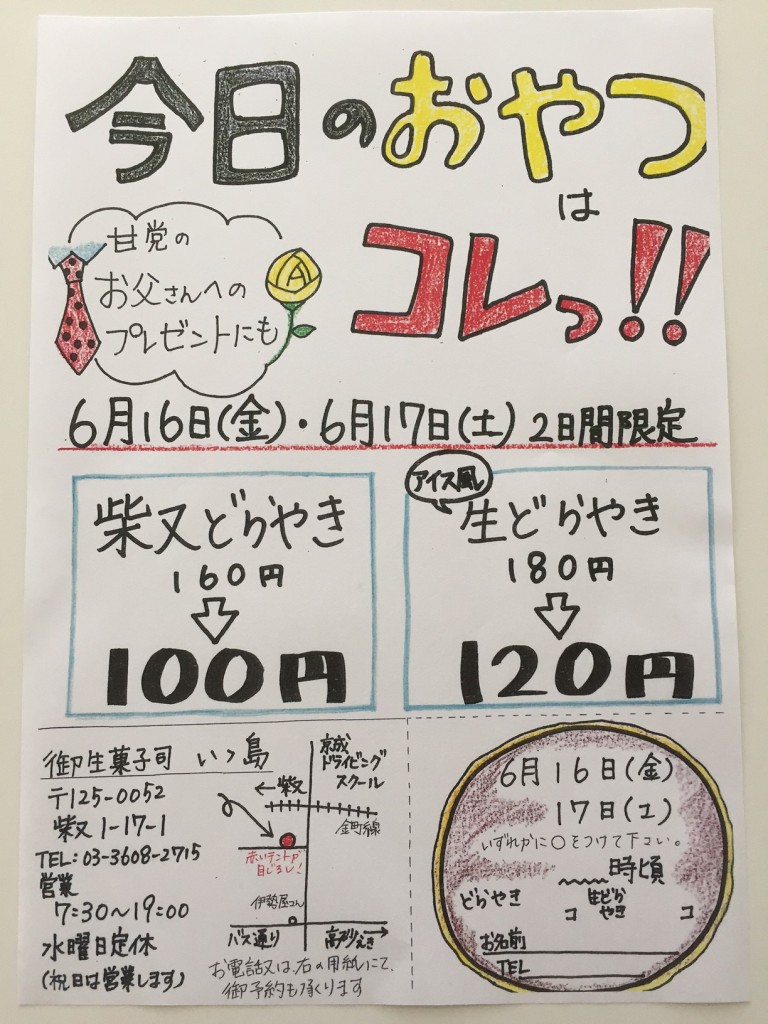 今日のおやつ
は
コレっ!!
甘党の
お父さんへの
プレゼントにも
A
6月16日(金)・6月17日(土) 2日間限定
柴又どらやき
160円
100円
アイス風
生どらやき
180円
120円
御生菓子司 いつ島
〒125-0052
柴又1-17-1
TEL: 03-3608-2715
営業
7:30〜19:00
水曜日定休
(祝日は営業します)
京成
ドライビング
スクール
←柴又
金町線
赤いテントが
目じるし!
伊勢屋さん
バス通り
高砂えき
お電話又は、右の用紙にて、
御予約も承くります
6月16日(金)
17日(土)
いずれかに○をつけて下さい。
時頃
どらやき
コ
生どら
やき
コ
お名前
TEL